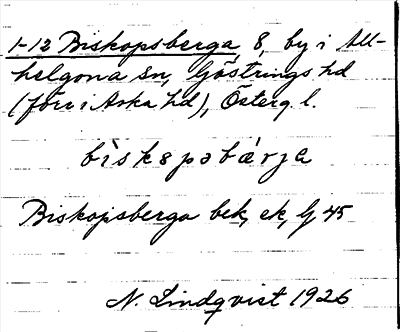 1-12 Biskopsberga 8, by i All-
helgona sn, Göstrings hd
(förr i Aska hd), Österg. l.
bìskɞpəbár̡ja
Biskopsberga bek, ek, Gj 45
N. Lindqvist 1926